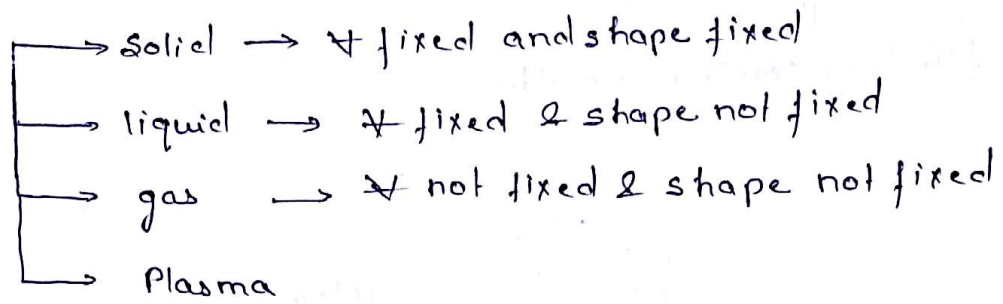 → Solid → V̶ fixed and shape fixed
→ liquid → V̶ fixed & shape not fixed
→ gas → V̶ not fixed & shape not fixed
→ Plasma